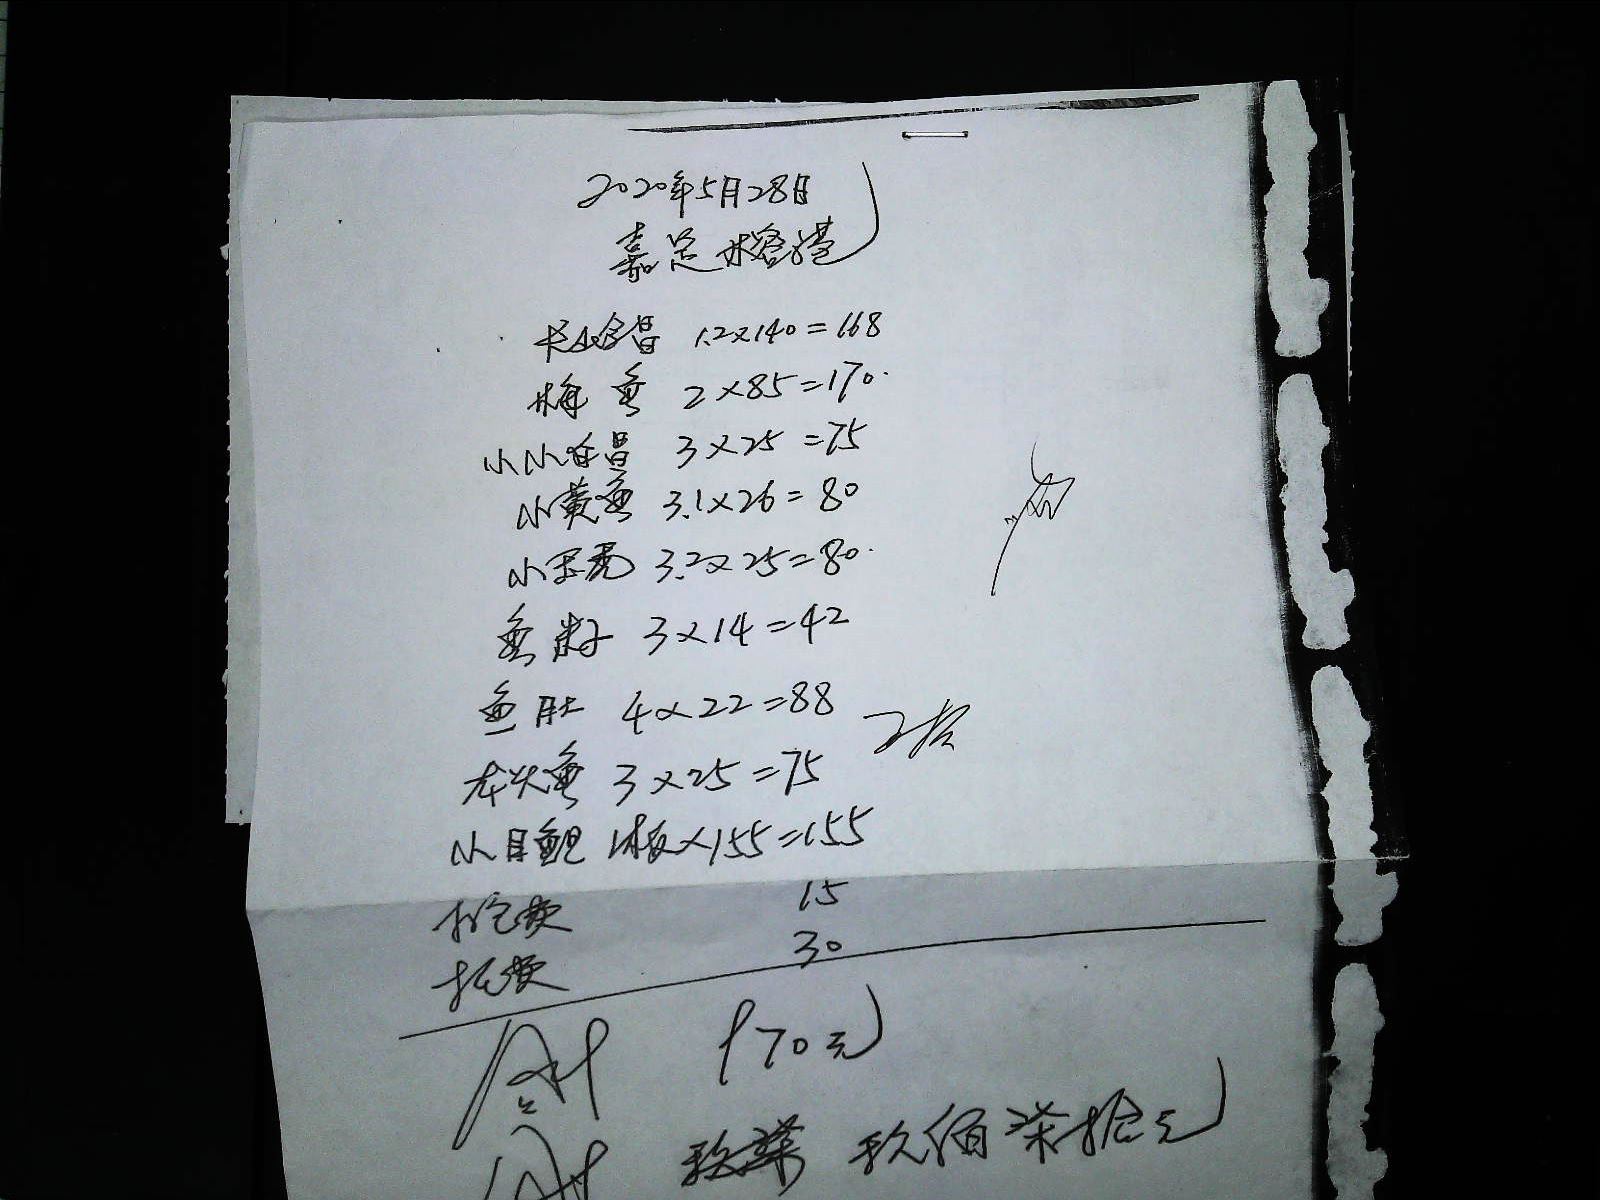 2020年5月28日
嘉定
1.2×140=168
梅鱼 2×85=170
小小白昌 3×25=75
小黄鱼 3.1×26=80
小黑虎 3.2×25=80
鱼籽 3×14=42
鱼肚 4×22=88
龙头鱼 3×25=75
小目鱼 1板×155=155
打包费 15
托费 30
合计 970元
玖佰柒拾元